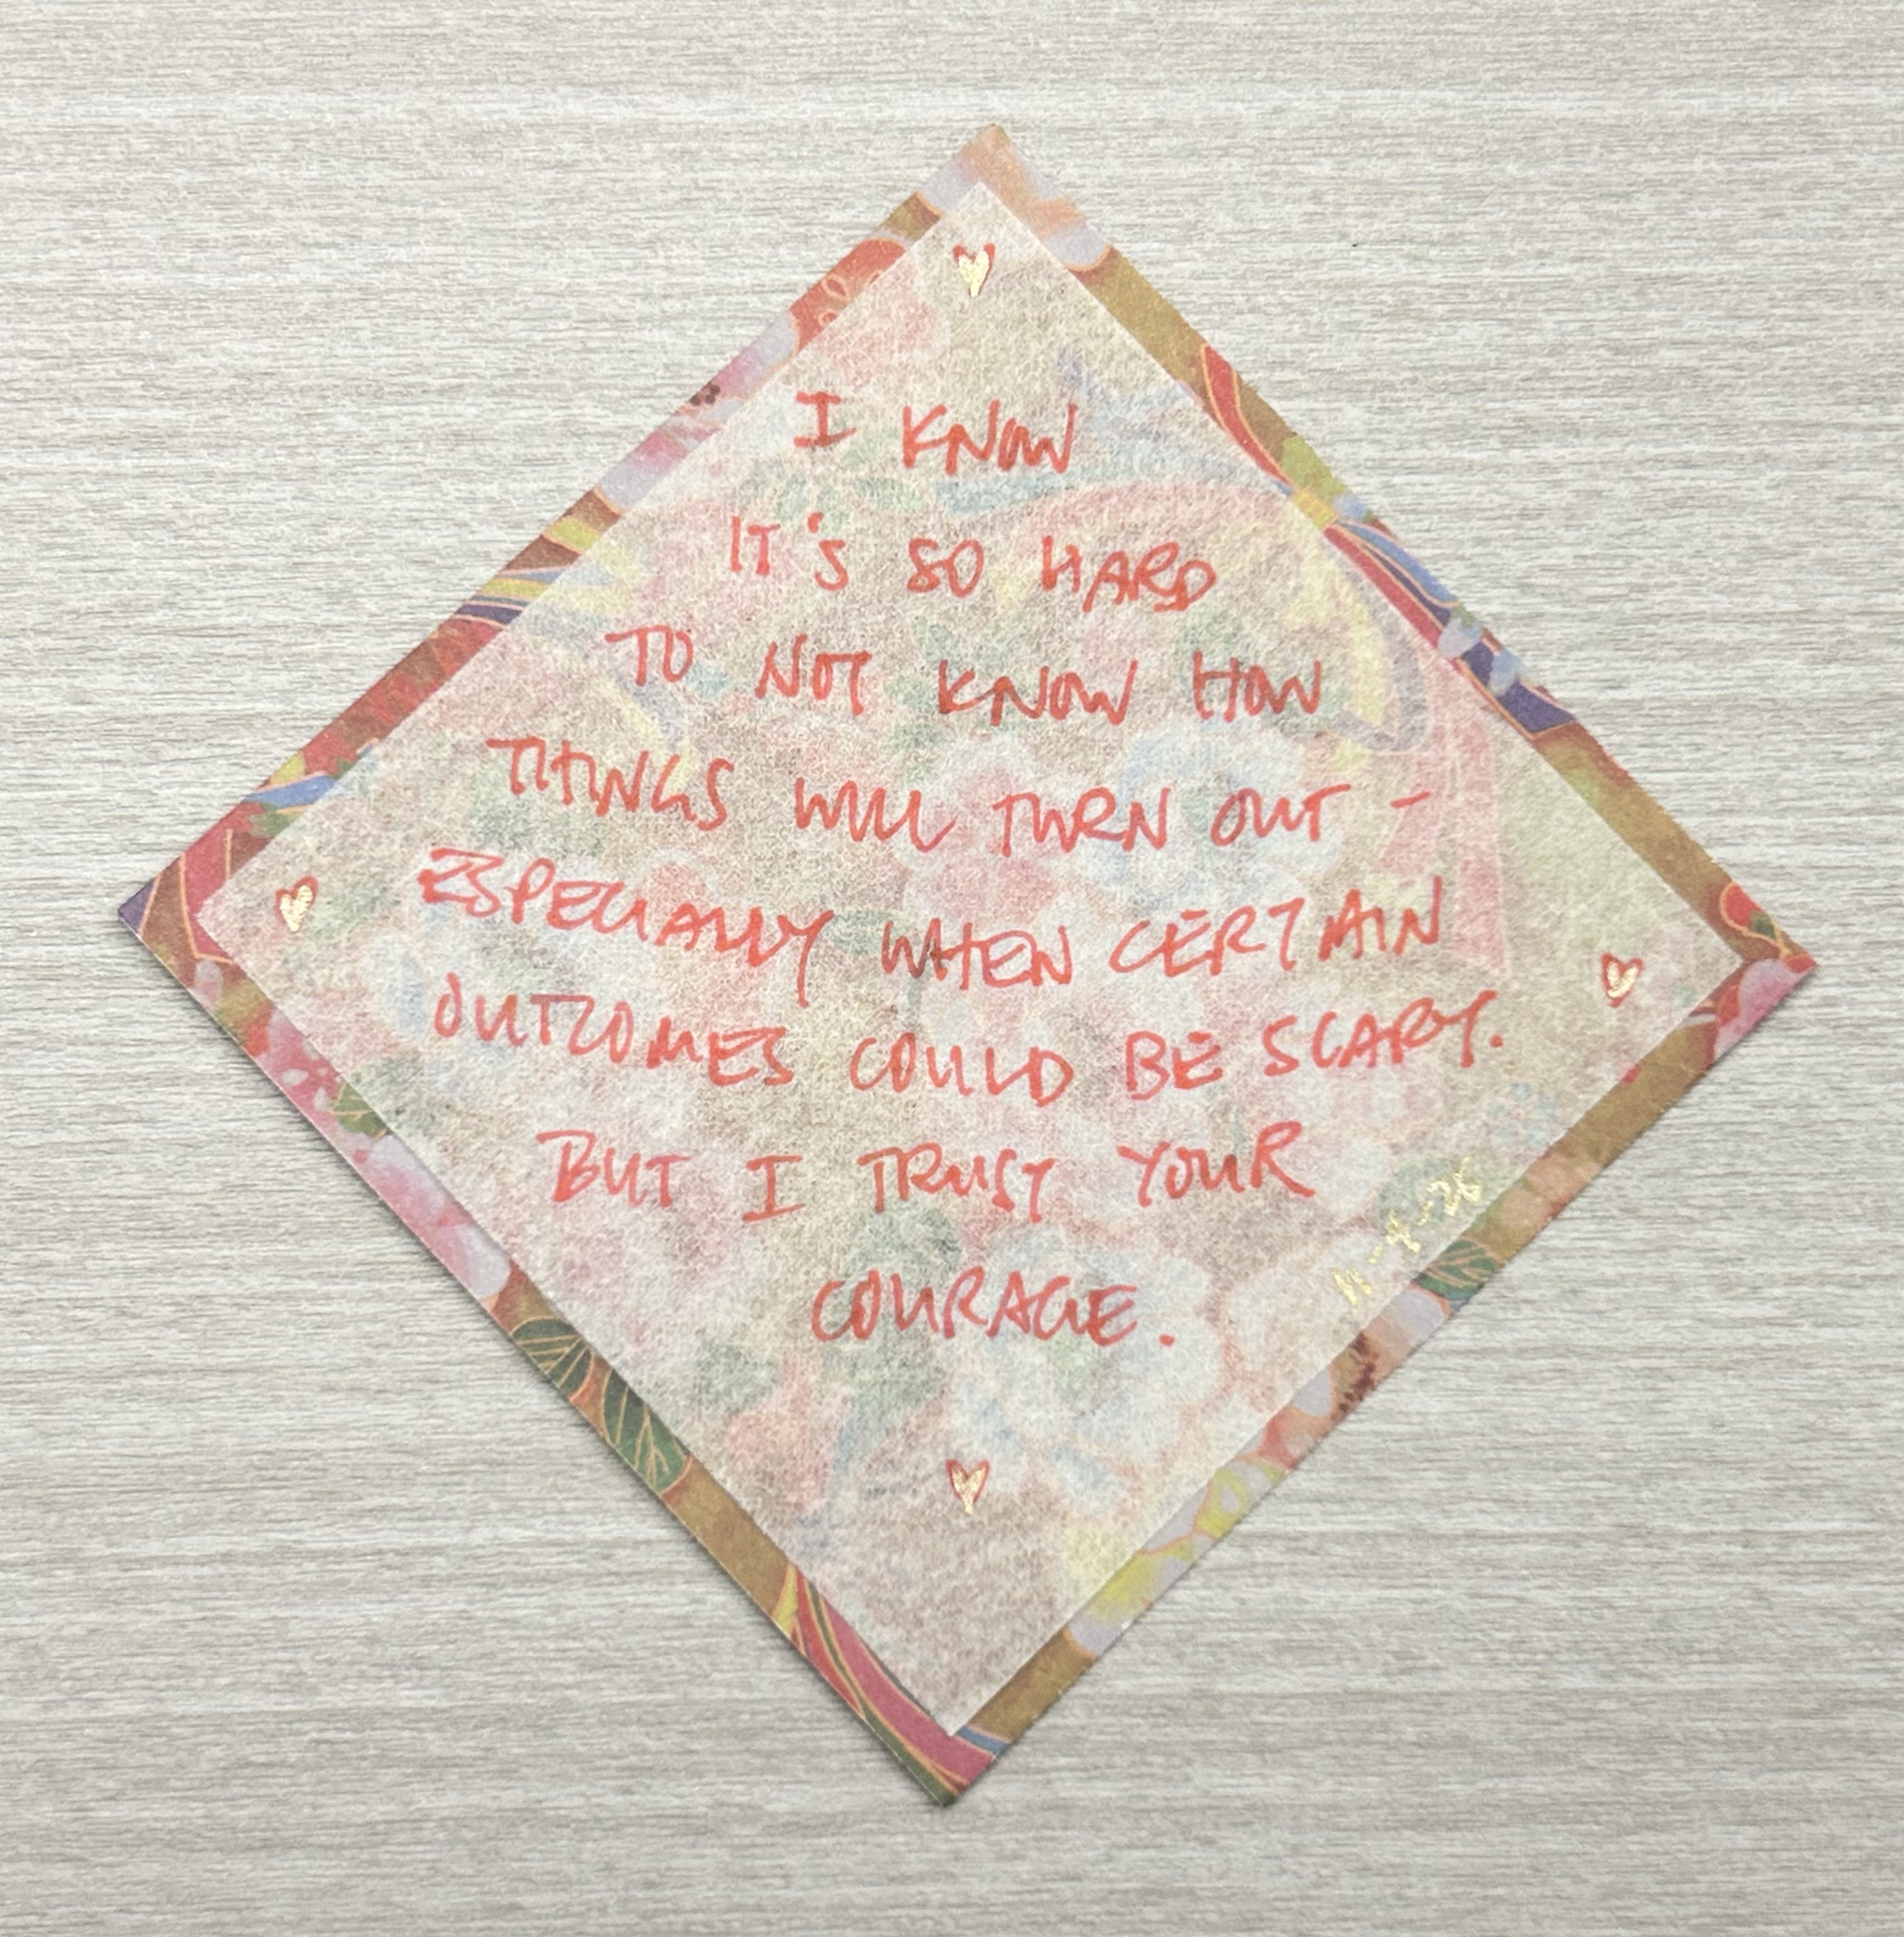 I KNOW
IT'S SO HARD
TO NOT KNOW HOW
THINGS WILL TURN OUT -
ESPECIALLY WHEN CERTAIN
OUTCOMES COULD BE SCARY.
BUT I TRUST YOUR
COURAGE.
11-4-25